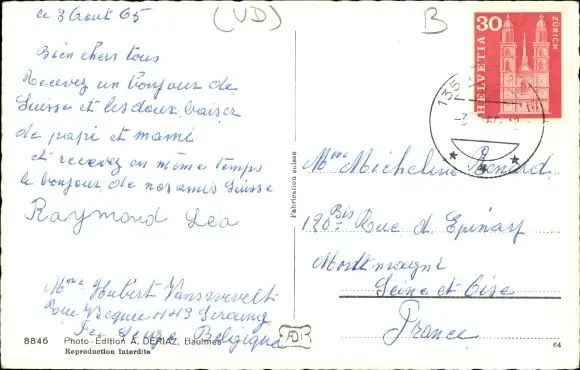 (VD)
B
ce 3 Aout 65
Bien chers tous
Recevez un bonjour de
Suisse et les doux baiser
de papi et mami
et recevez en même temps
le bonjour de nos amis Suisse
Raymond Lea
Mme Hubert
Rue
Belgique
8846 Photo-Edition A. DERIAZ, Baulmes
Reproduction Interdite
Fabrication suisse
30
HELVETIA
ZÜRICH
135
Mme Micheline
120 Bis Rue d Epinay
Montmagni
Seine et Oise
France
64